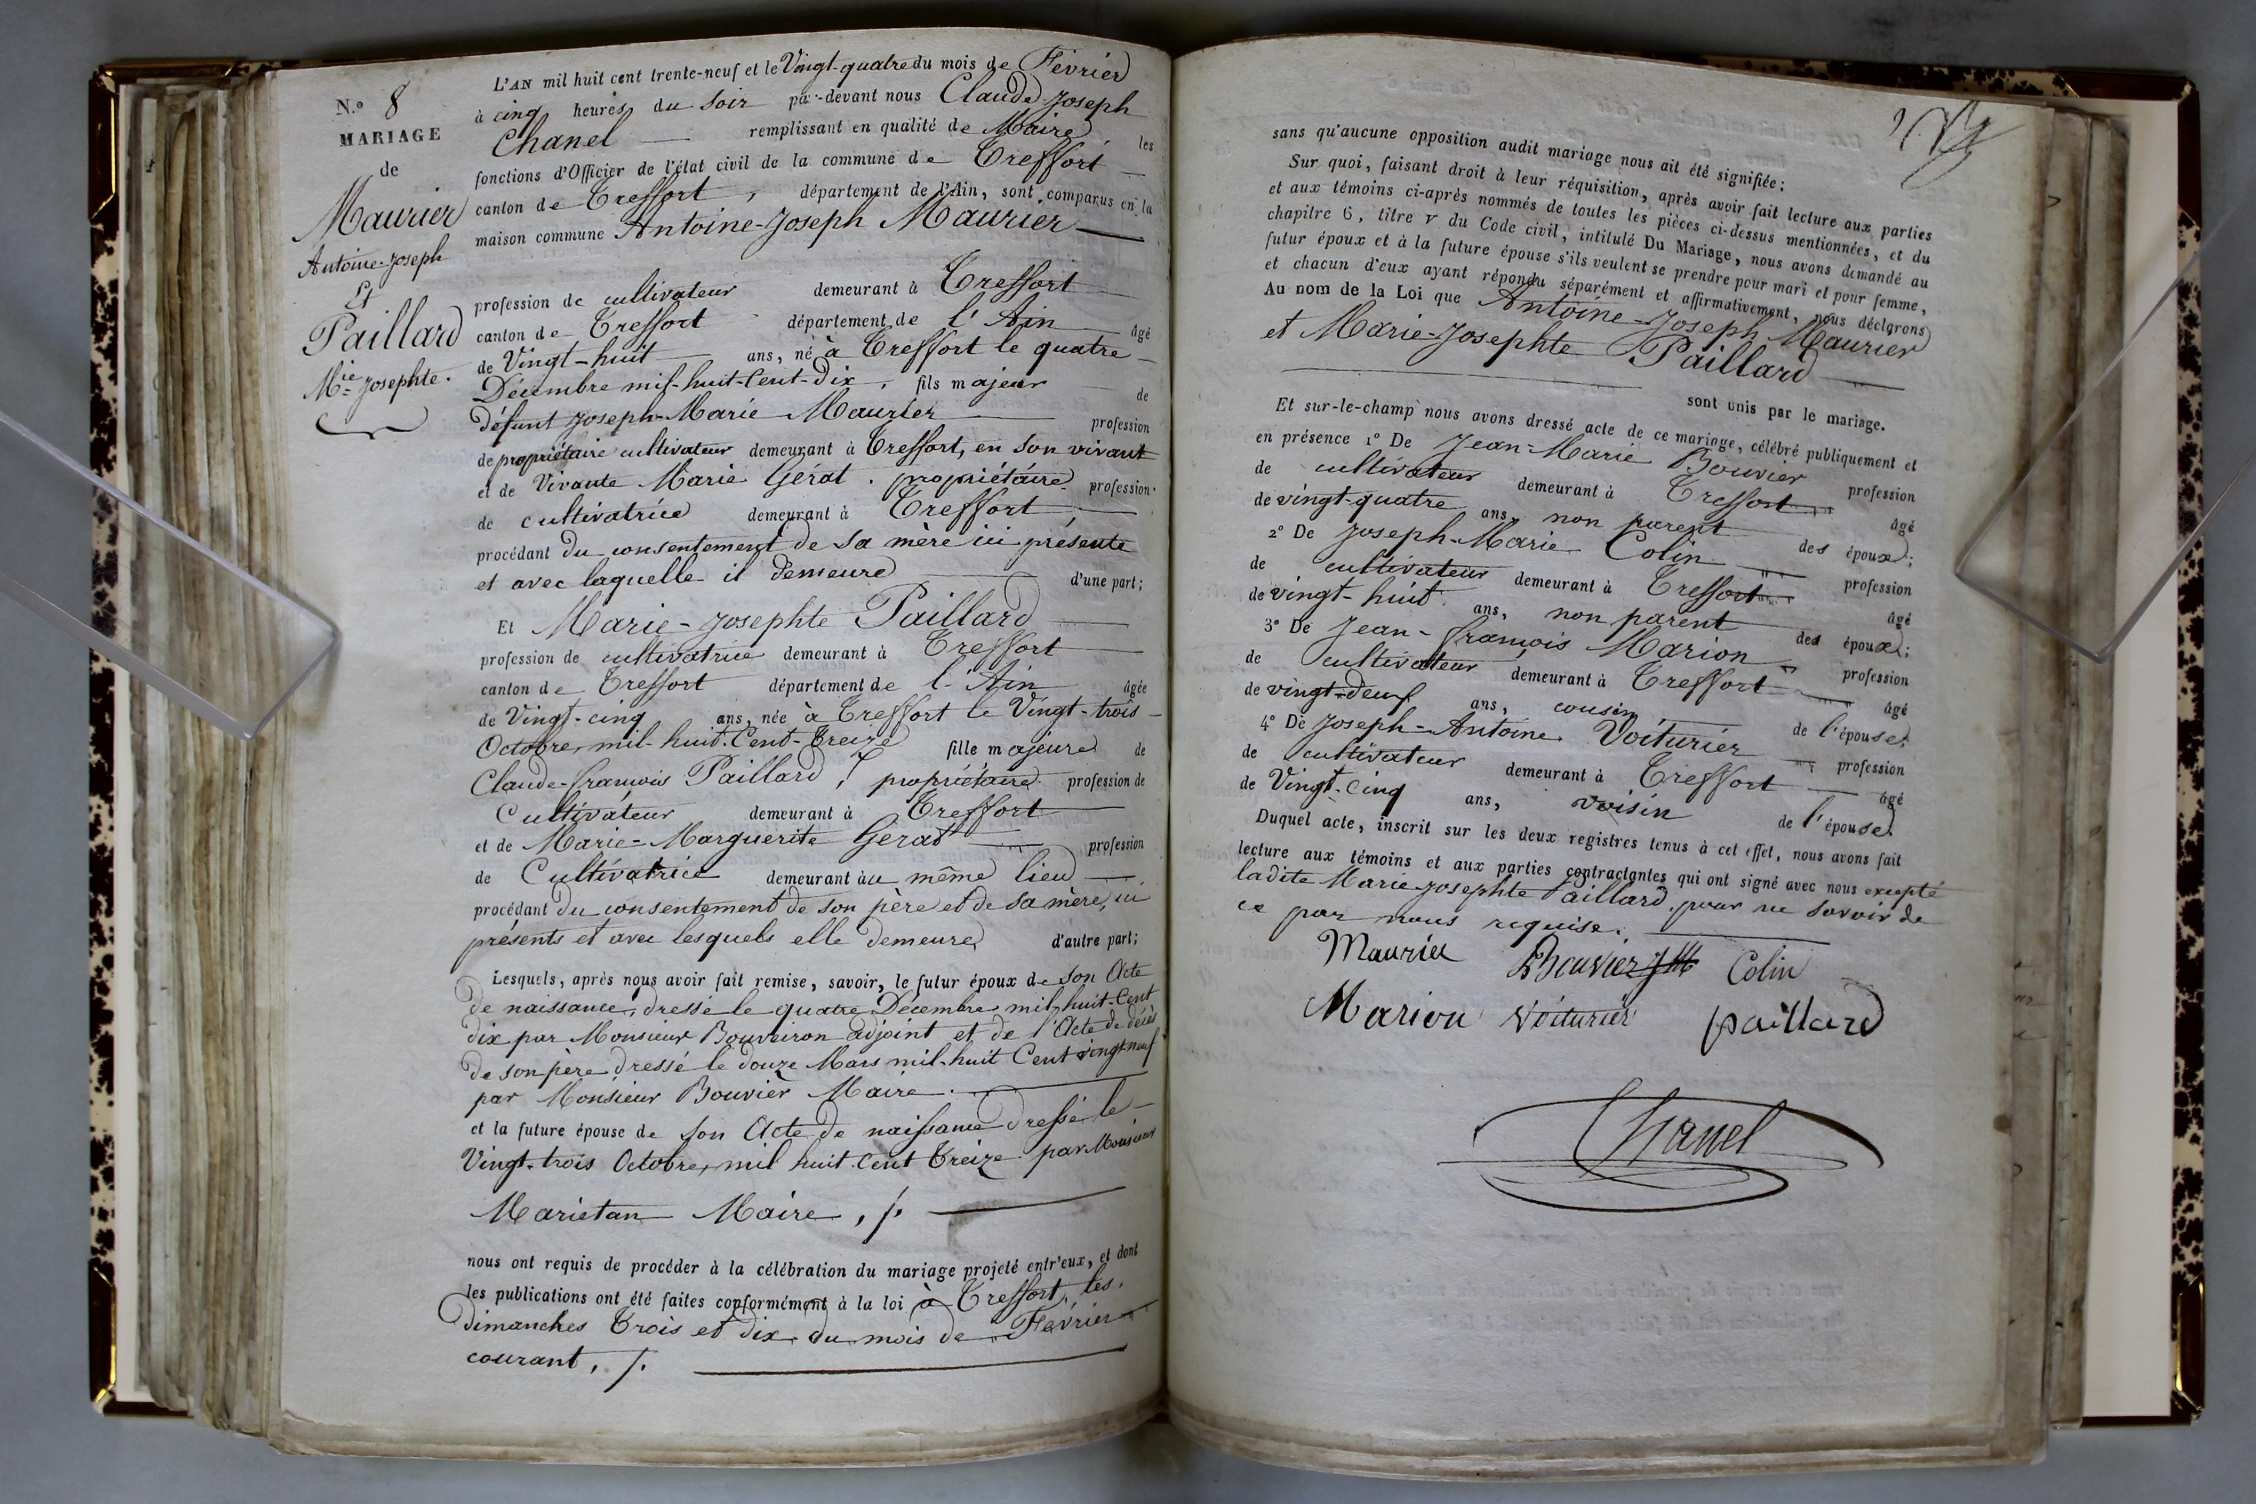 N.º 8
MARIAGE
de
Maurier
Antoine-Joseph
Et
Paillard
Mie Josephte.
L'AN mil huit cent trente-neuf et le Vingt-quatre du mois de Février
à cinq heures du soir par-devant nous Claude-Joseph
Chanel remplissant en qualité de Maire les
fonctions d'Officier de l'état civil de la commune de Treffort
canton de Treffort, département de l'Ain, sont comparus en la
maison commune Antoine-Joseph Maurier
profession de cultivateur demeurant à Treffort
canton de Treffort département de l'Ain âgé
de Vingt-huit ans, né à Treffort le quatre
Décembre mil-huit-Cent-Dix, fils majeur de
défunt Joseph-Marie Maurier profession
de propriétaire cultivateur demeurant à Treffort, en son vivant
et de Vivante Marie Gérat. propriétaire profession
de cultivatrice demeurant à Treffort
procédant du consentement de sa mère ici présente
et avec laquelle il demeure d'une part;
Et Marie-Josephte Paillard
profession de cultivatrice demeurant à Treffort
canton de Treffort département de l'Ain âgée
de Vingt-cinq ans, née à Treffort le Vingt-trois
Octobre, mil-huit-Cent-Treize fille majeure de
Claude-françois Paillard, propriétaire profession de
Cultivateur demeurant à Treffort
et de Marie-Marguerite Gerat profession
de Cultivatrice demeurant au même lieu
procédant du consentement de son père et de sa mère, ici
présents et avec lesquels elle demeure d'autre part;
Lesquels, après nous avoir fait remise, savoir, le futur époux de son Acte
de naissance, dressé le quatre Décembre mil-huit-Cent
dix par Monsieur Bouveiron adjoint et de l'Acte de décès
de son père dressé le douze Mars mil-huit Cent vingt neuf
par Monsieur Bouvier Maire.
et la future épouse de son Acte de naissance dressé le
Vingt-trois Octobre, mil huit-Cent Treize par Monsieur
Marietan Maire, /.
nous ont requis de procéder à la célébration du mariage projeté entr'eux, et dont
les publications ont été faites conformément à la loi à Treffort, les
dimanches Trois et dix du mois de Février
courant, /.
sans qu'aucune opposition audit mariage nous ait été signifiée;
Sur quoi, faisant droit à leur réquisition, après avoir fait lecture aux parties
et aux témoins ci-après nommés de toutes les pièces ci-dessus mentionnées, et du
chapitre 6, titre V du Code civil, intitulé Du Mariage, nous avons demandé au
futur époux et à la future épouse s'ils veulent se prendre pour mari et pour femme,
et chacun d'eux ayant répondu séparément et affirmativement, nous déclarons
Au nom de la Loi que Antoine-Joseph Maurier
et Marie-Josephte Paillard
sont unis par le mariage.
Et sur-le-champ nous avons dressé acte de ce mariage, célébré publiquement et
en présence 1º De Jean-Marie Bouvier profession
de cultivateur demeurant à Treffort âgé
de vingt-quatre ans, non parent des époux;
2º De Joseph-Marie Colin profession
de cultivateur demeurant à Treffort âgé
de vingt-huit ans, non parent des époux;
3º De Jean-françois Marion profession
de cultivateur demeurant à Treffort âgé
de vingt-deux ans, cousin de l'épouse;
4º De Joseph-Antoine Voiturier profession
de cultivateur demeurant à Treffort âgé
de Vingt-Cinq ans, voisin de l'épouse.
Duquel acte, inscrit sur les deux registres tenus à cet effet, nous avons fait
lecture aux témoins et aux parties contractantes qui ont signé avec nous excepté
ladite Marie-Josephte Paillard. pour ne savoir de
ce par nous requise.
Maurier Bouvier JM Colin
Marion Voiturier paillard
Chanel